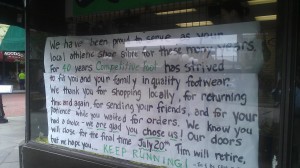 We have been proud to serve as your
local athletic shoe store for these many years.
For 40 years Competitive Foot has strived
to fit you and your family in quality footwear.
We thank you for shopping locally, for returning
time and again, for sending your friends, and for your
patience while you waited for orders. We know you
had a choice - we are glad you chose us! Our doors
will close for the final time July 20th. Tim will retire,
but we hope you... KEEP RUNNING!